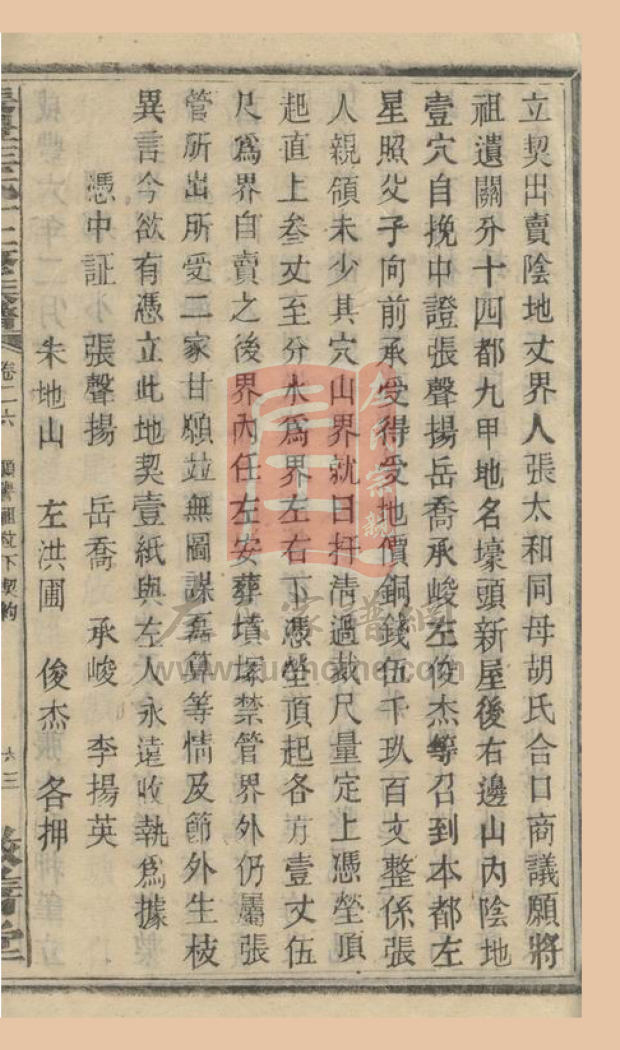 立契出賣陰地丈界人張太和同母胡氏合口商議願將
祖遺關分十四都九甲地名壕頭新屋後右邊山內陰地
壹穴自挽中證張聲揚岳喬承峻左俊杰等召到本都左
星照父子向前承受得受地價銅錢伍千玖百文整係張
人親領未少其穴山界就日扦清過裁尺量定上憑塋頂
起直上叁丈至分水爲界左右下憑塋頂起各方壹丈伍
尺爲界自賣之後界內任左安葬墳塜禁管界外仍屬張
管所出所受二家甘願並無圖謀磊算等情及節外生枝
異言今欲有憑立此地契壹紙與左人永遠收執爲據
憑中証 張聲揚 岳喬 承峻 李揚英
朱地山 左洪圃 俊杰 各押
卷二六
下契約
六三
左氏宗親
左氏家譜網